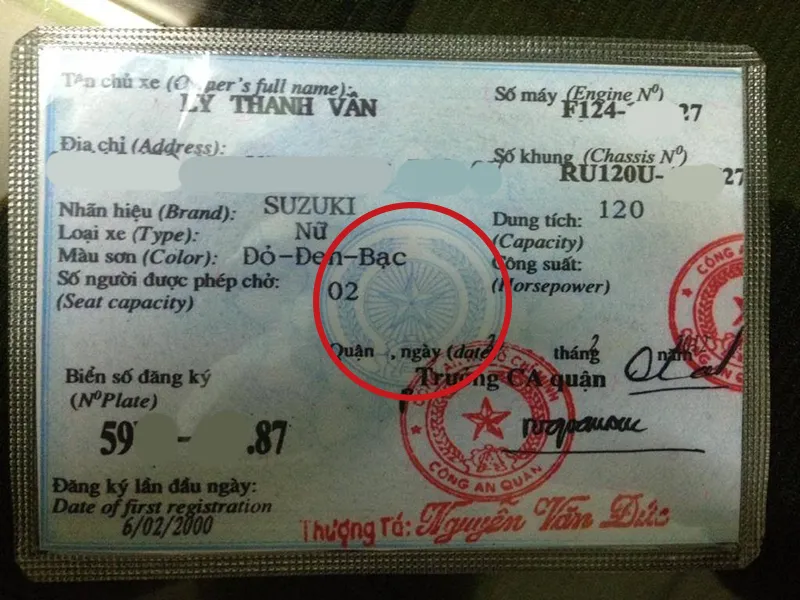 Tên chủ xe (O er's full name):
LÝ THANH VÂN
Số máy (Engine Nº)
F124- 27
Địa chỉ (Address):
Số khung (Chassis Nº)
RU120U- 27
Nhãn hiệu (Brand): SUZUKI
Dung tích: 120
(Capacity)
Loại xe (Type): Nữ
Màu sơn (Color): Đỏ-Đen-Bạc
Công suất:
(Horsepower)
Số người được phép chở: 02
(Seat capacity)
Quận , ngày (date tháng 2 năm
Trưởng CA quận
Biển số đăng ký
(NºPlate)
59 - .87
CÔNG AN QUẬN
CÔNG AN
Đăng ký lần đầu ngày:
Date of first registration
6/02/2000
Thượng Tá: Nguyễn Văn Đức